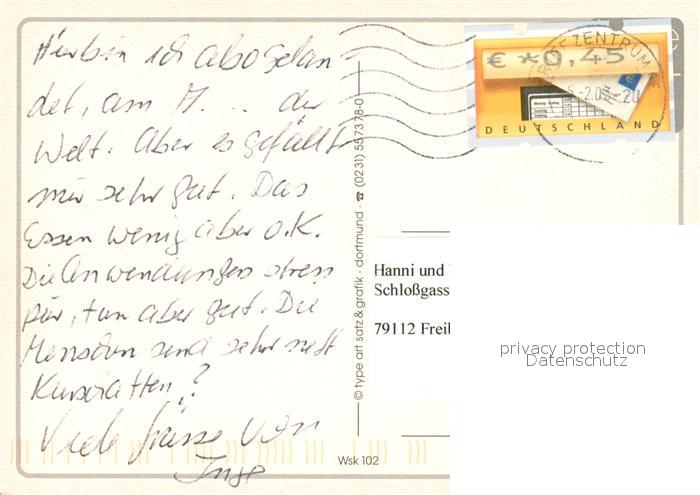 Hier bin ich also gelan-
det, am A... der
Welt. Aber es gefällt
mir sehr gut. Das
Essen wenig aber o.K.
Die Anwendungen stress
pur, tun aber gut. Die
Menschen sind sehr nett
Kurschatten?
Viele Grüsse von
Inge
€ *0,45
DEUTSCHLAND
ZENTRUM
© type art satz & grafik · dortmund · ☎ (0231) 557378-0
Hanni und
Schloßgass
79112 Freib
privacy protection
Datenschutz
Wsk 102